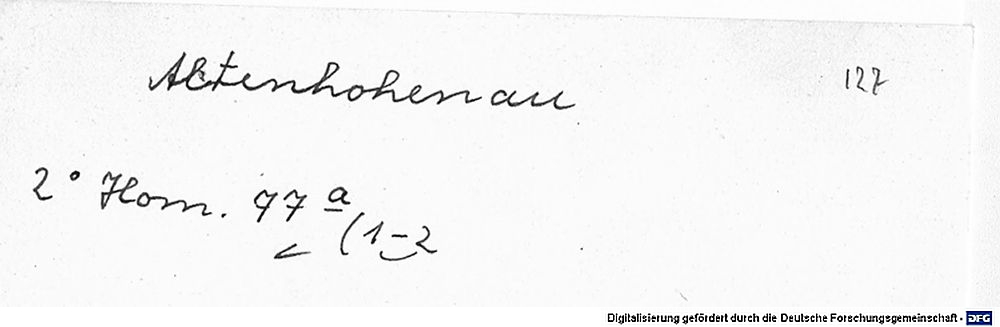 Altenhohenau 127
2° Hom. 77 a
(1-2
Digitalisierung gefördert durch die Deutsche Forschungsgemeinschaft - DFG